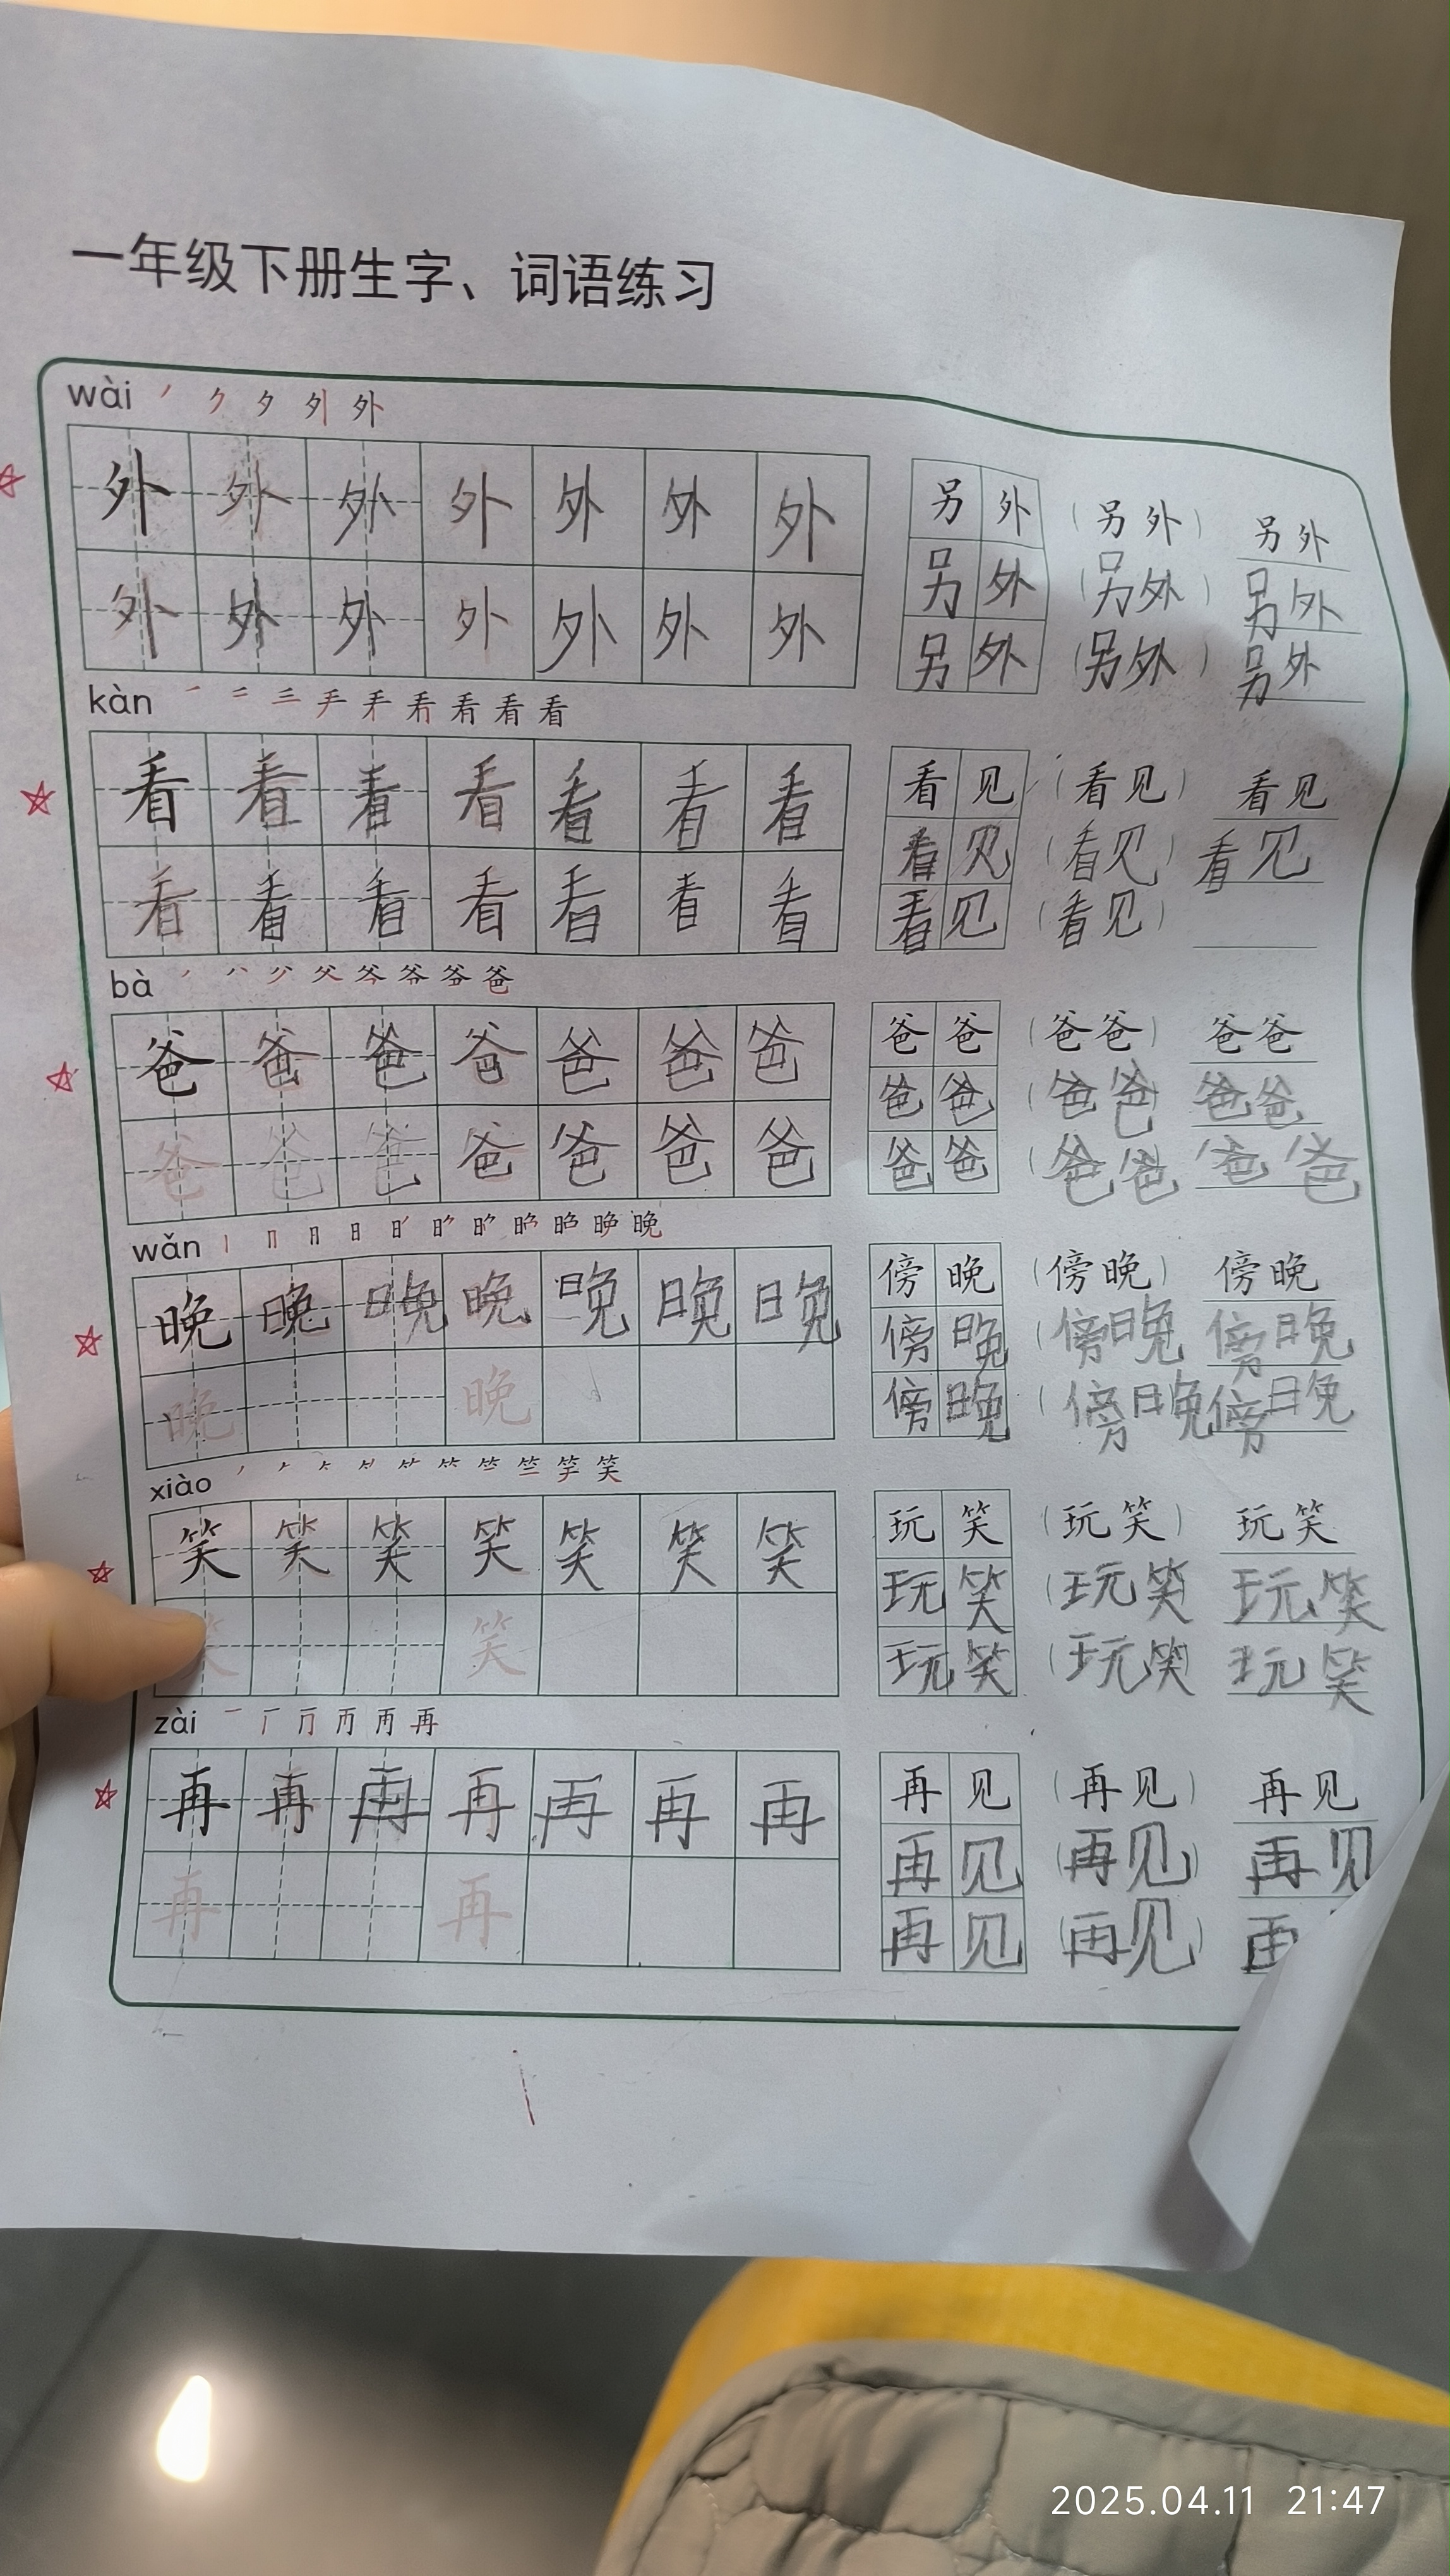 一年级下册生字、词语练习
wài
外 外 外 外 外 外 外 另 外 (另 外) 另 外
外 外 外 外 外 外 外 另 外 (另外) 另外
另 外 (另外) 另外
kàn
看 看 看 看 看 看 看 看 见 (看 见) 看 见
看 看 看 看 看 看 看 看 见 (看见) 看见
看 见 (看见)
bà
爸 爸 爸 爸 爸 爸 爸 爸 爸 (爸 爸) 爸 爸
爸 爸 爸 爸 爸 爸 爸 爸 爸 (爸爸) 爸爸
爸 爸 (爸爸 爸爸
wǎn
晚 晚 晚 晚 晚 晚 晚 傍 晚 (傍 晚) 傍 晚
晚 晚 傍 晚 (傍晚 傍晚
傍 晚 (傍晚 傍晚
xiào
笑 笑 笑 笑 笑 笑 笑 玩 笑 (玩 笑) 玩 笑
笑 笑 玩 笑 (玩笑 玩笑
玩 笑 (玩笑 玩笑
zài
再 再 再 再 再 再 再 再 见 (再 见) 再 见
再 再 再 见 (再见) 再见
再 见 (再见) 再
2025.04.11 21:47